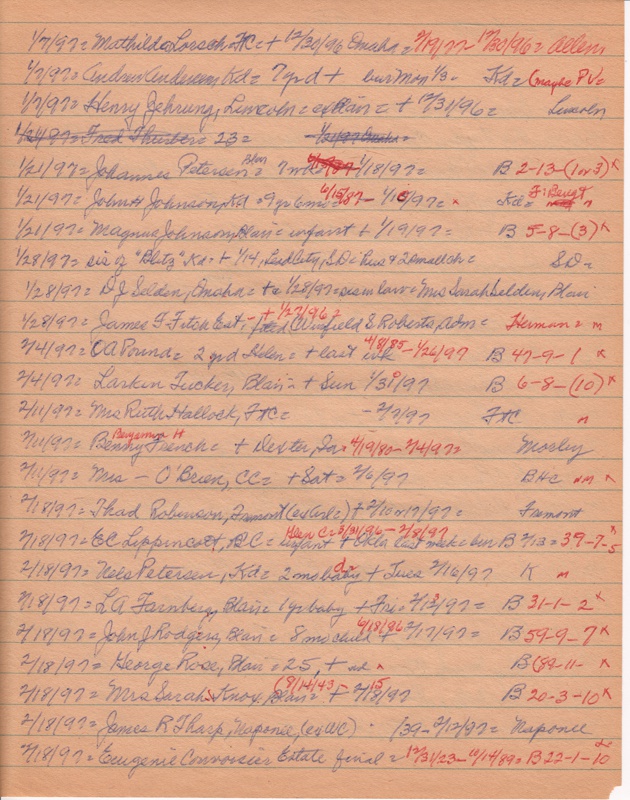 1/7/97= Mathilda Lorsch, FtC= + 12/30/96 Omaha= 2/19/77-12/30/96= Allen
1/7/97= Andrew Andersen, Kd= 7 yr d + bur Mon 1/3= Kd= (maybe PV=
1/7/97= Henry Jehrung, Lincoln= exBlair= + 12/31/96= Lincoln
1/21/97= Fred Thurber= 23= 1/21/97 Omaha=
1/21/97= Johannes Petersen= Blair 7 wks 1/18/97= B 2-13-(1 or 3) x
1/21/97= John H Johnson, Kd= 9 yr 6 mo= 6/15/87- 1/10/97= x Kd=
1/21/97= Magnus Johnson, Blair= infant + 1/19/97= B 5-8-(3) x
1/28/97= sis of "Blotz" Kd= + 1/14, Lead City, SD= hus & 2 small ch= SD=
1/28/97= D J Selden, Omaha= + 1/28/97= sis in law= Mrs Sarah Selden, Blair
1/28/97= James G Fitch Est, - + 1/27/96= Winfield S Roberts, adm= Herman= m
2/4/97= O A Pound= 2 yr d Helen= + last wk 4/8/85-1/26/97 B 47-9-1 x
2/4/97= Larkin Tucker, Blair= + Sun 1/31/97 B 6-8-(10) x
2/11/97= Mrs Ruth Hallock, FtC= -2/7/97 FtC m
2/11/97= Benny French= Benjamin H + Dexter, Ia= 4/19/80-2/4/97= Mosley
2/11/97= Mrs - O'Brien, CC= + Sat= 2/6/97 BHC nm x
2/18/97= Thad Robinson, Fremont (ex Arl=) + 2/16 or 17/97= Fremont
2/18/97= E C Lippincott, BC= infant Glen C= 3/31/96-2/8/97 + Okla last week= bur B 2/13= 39-7-5 x
2/18/97= Nels Petersen, Kd= 2 mo baby da + Tues 2/16/97 K m
2/18/97= L A Farnberg, Blair= 1 yr baby + Fri= 2/12/97= B 31-1-2 x
2/18/97= John J Rodgers, Blair= 8 mo child + 6/18/96 2/17/97= B 59-9-7 x
2/18/97= George Rose, Blair= 25, + nd x B (89-11- x
2/18/97= Mrs Sarah Knox, Blair= (9/14/43- + 2/15/97 B 20-3-10 x
2/18/97= James R Tharp, Naponee, (ex WC) · (39-2/12/97= Naponee
2/18/97= Eugenie Connoisier Estate final= 12/31/23-10/14/89= B 22-1-10